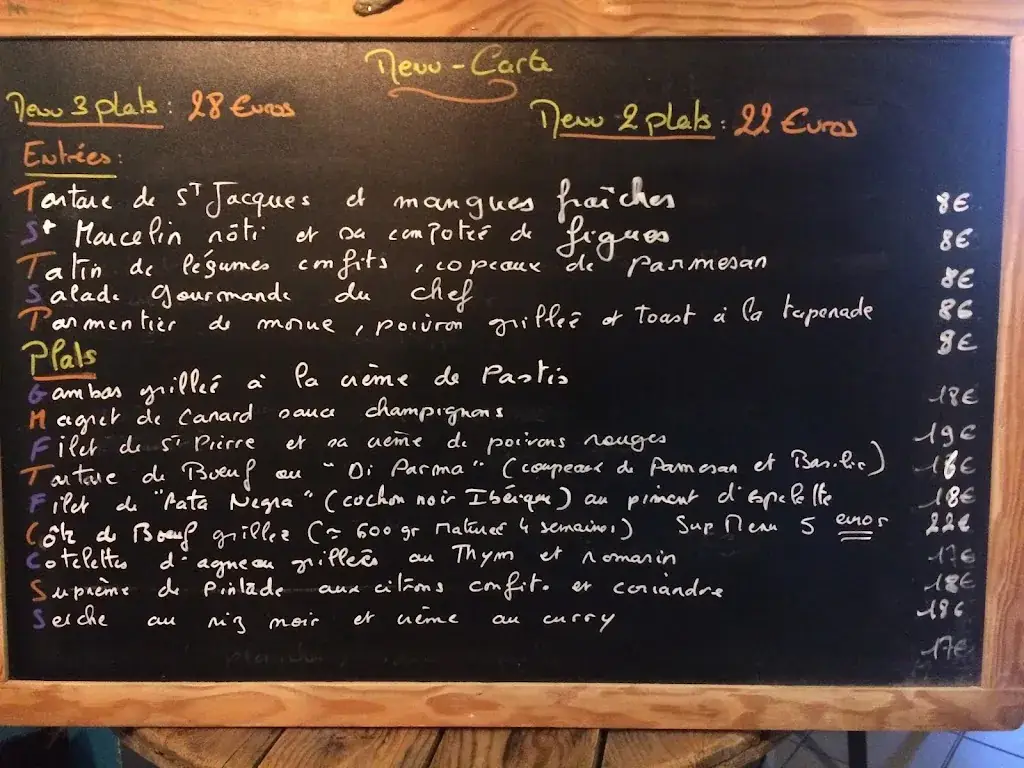 Menu - Carte
Menu 3 plats : 28 Euros
Menu 2 plats : 22 Euros
Entrées :
Tartare de St Jacques et mangues fraîches 8€
St Marcelin rôti et sa compotée de figues 8€
Tatin de légumes confits, copeaux de parmesan 8€
Salade gourmande du chef 8€
Parmentier de morue, poivron grillée et toast à la tapenade 8€
Plats
Gambas grillée à la crème de Pastis 18€
Magret de Canard sauce champignons 19€
Filet de St Pierre et sa crème de poivrons rouges 16€
Tartare de Boeuf au "Di Parma" (coupeaux de Parmesan et Basilic) 18€
Filet de "Pata Negra" (cochon noir Ibérique) au piment d'espelette 22€
Côte de Boeuf grillée (≈ 600 gr Maturée 4 semaines) Sup Menu 5 euros 17€
Cotelettes d'agneau grilleés au Thym et romarin 18€
Suprème de Pintade aux citrons confits et coriandre 18€
Seiche au riz noir et crème au curry 17€